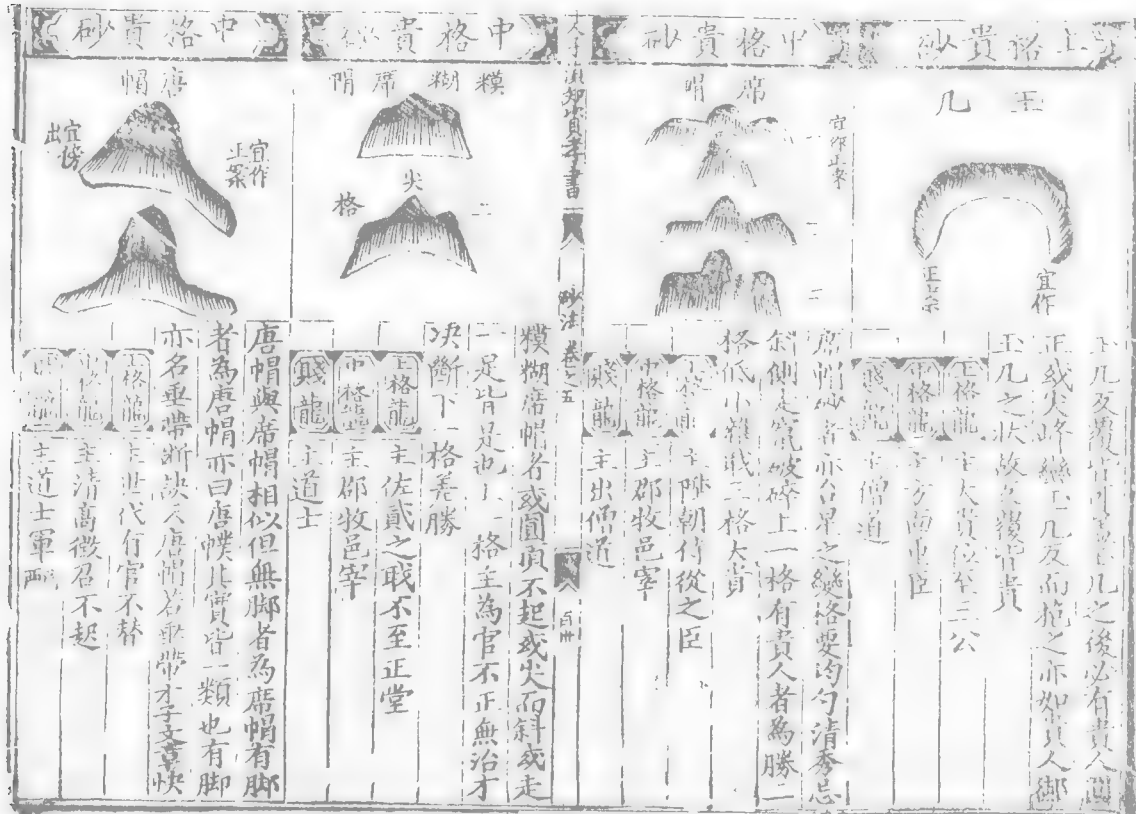 上格貴砂
玉几
宜作
正案
玉几之狀故名覆
上格龍
主大貴位至三公
中格龍
主方面重臣
賤龍
主僧道
中格貴砂
席帽
宜作正案
一
二
三
席帽砂者亦台星之變格要均勻清秀忌
斜側走竄破碎上一格有貴人者為勝二
格低小雜職三格大貴
上格龍
主陞朝侍從之臣
中格龍
主郡牧邑宰
賤龍
主出僧道
人子須知資孝書
砂法 卷之五
中格貴砂
糢糊席帽
尖
二
格
糢糊席帽者或圓頂不起或尖而斜或走
一足皆是也上一格主為官不正無治才
决斷下一格差勝
上格龍
主佐貳之職不至正堂
中格龍
主郡牧邑宰
賤龍
主道士
中格貴砂
唐帽
宜作
正案
宜傍
出
唐帽與席帽相似但無脚者為席帽有脚
者為唐帽亦曰唐幞其實皆一類也有脚
亦名垂帶斷訣云唐帽若垂帶才子文章快
上格龍
主世代有官不替
中格龍
主清高徵召不起
賤龍
主道士軍